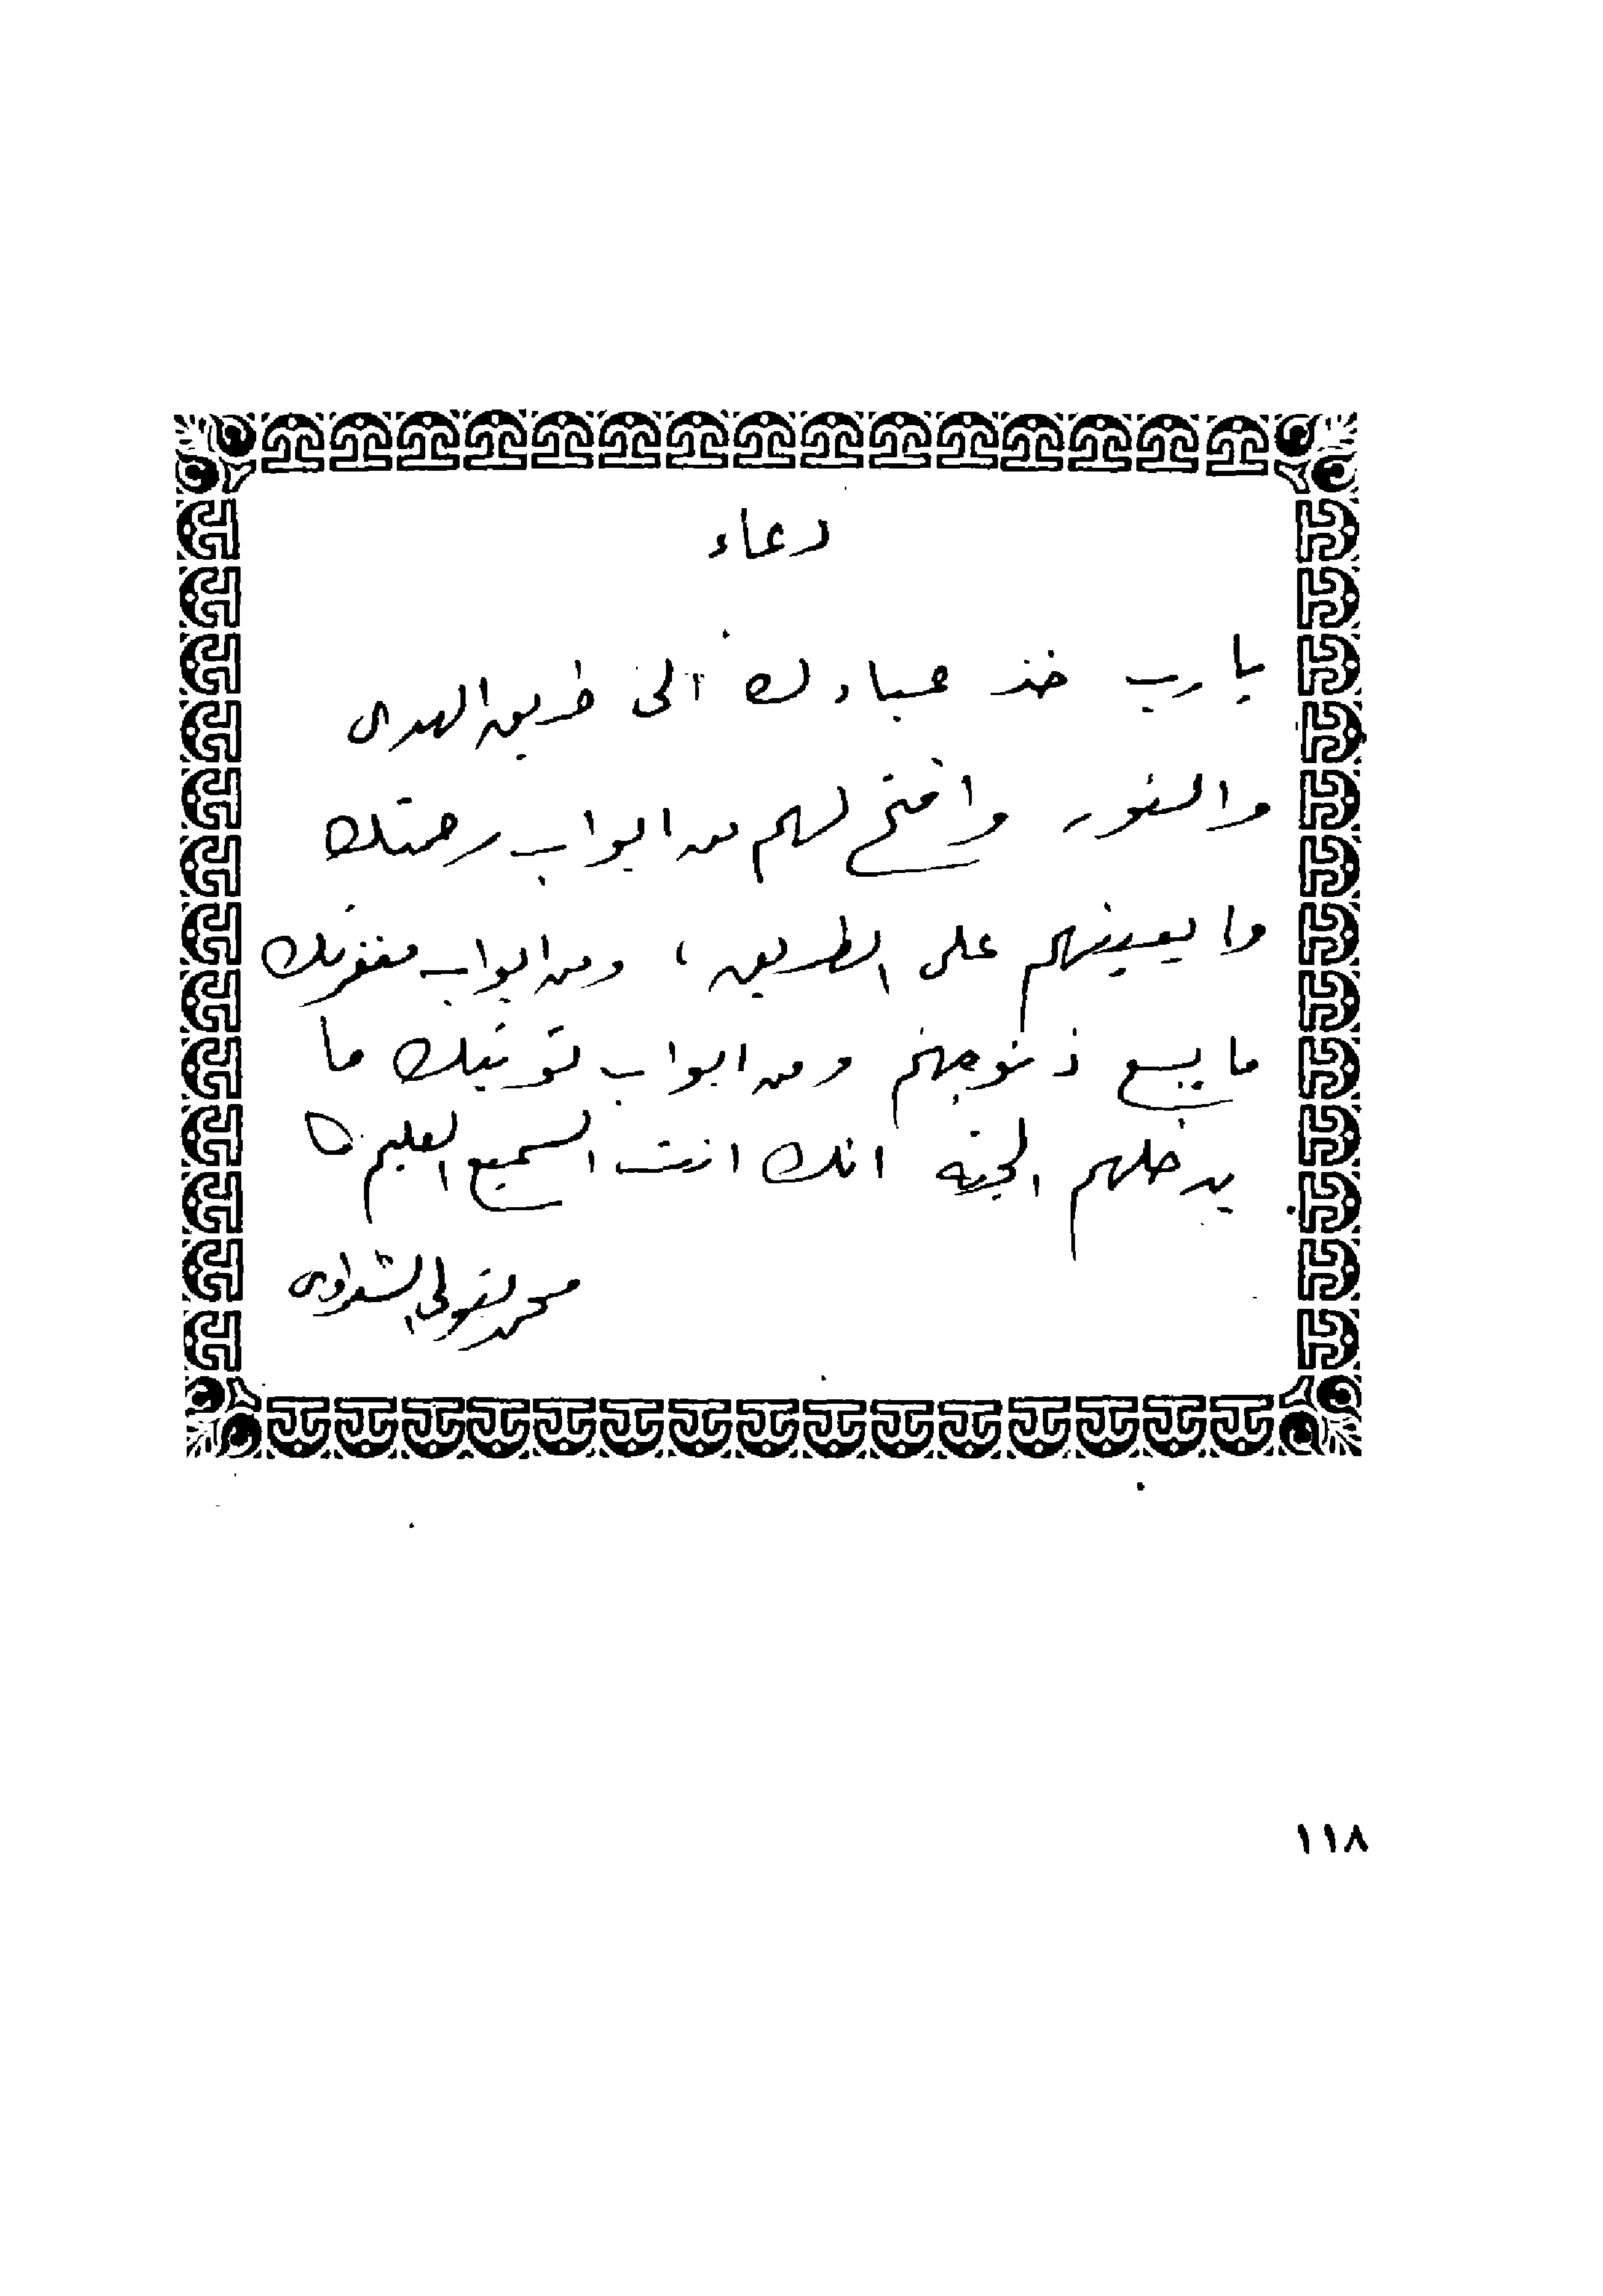 دعاء
يارب خذ عبادك الى طريق الهدى
والنور وافتح لهم من ابواب رحمتك
ما يعينهم على الطريق ، ومن ابواب مغفرتك
ما يسع ذنوبهم ومن ابواب توفيقك ما
يدخلهم الجنة انك انت السميع العليم
محمد متولى الشعراوى
١١٨